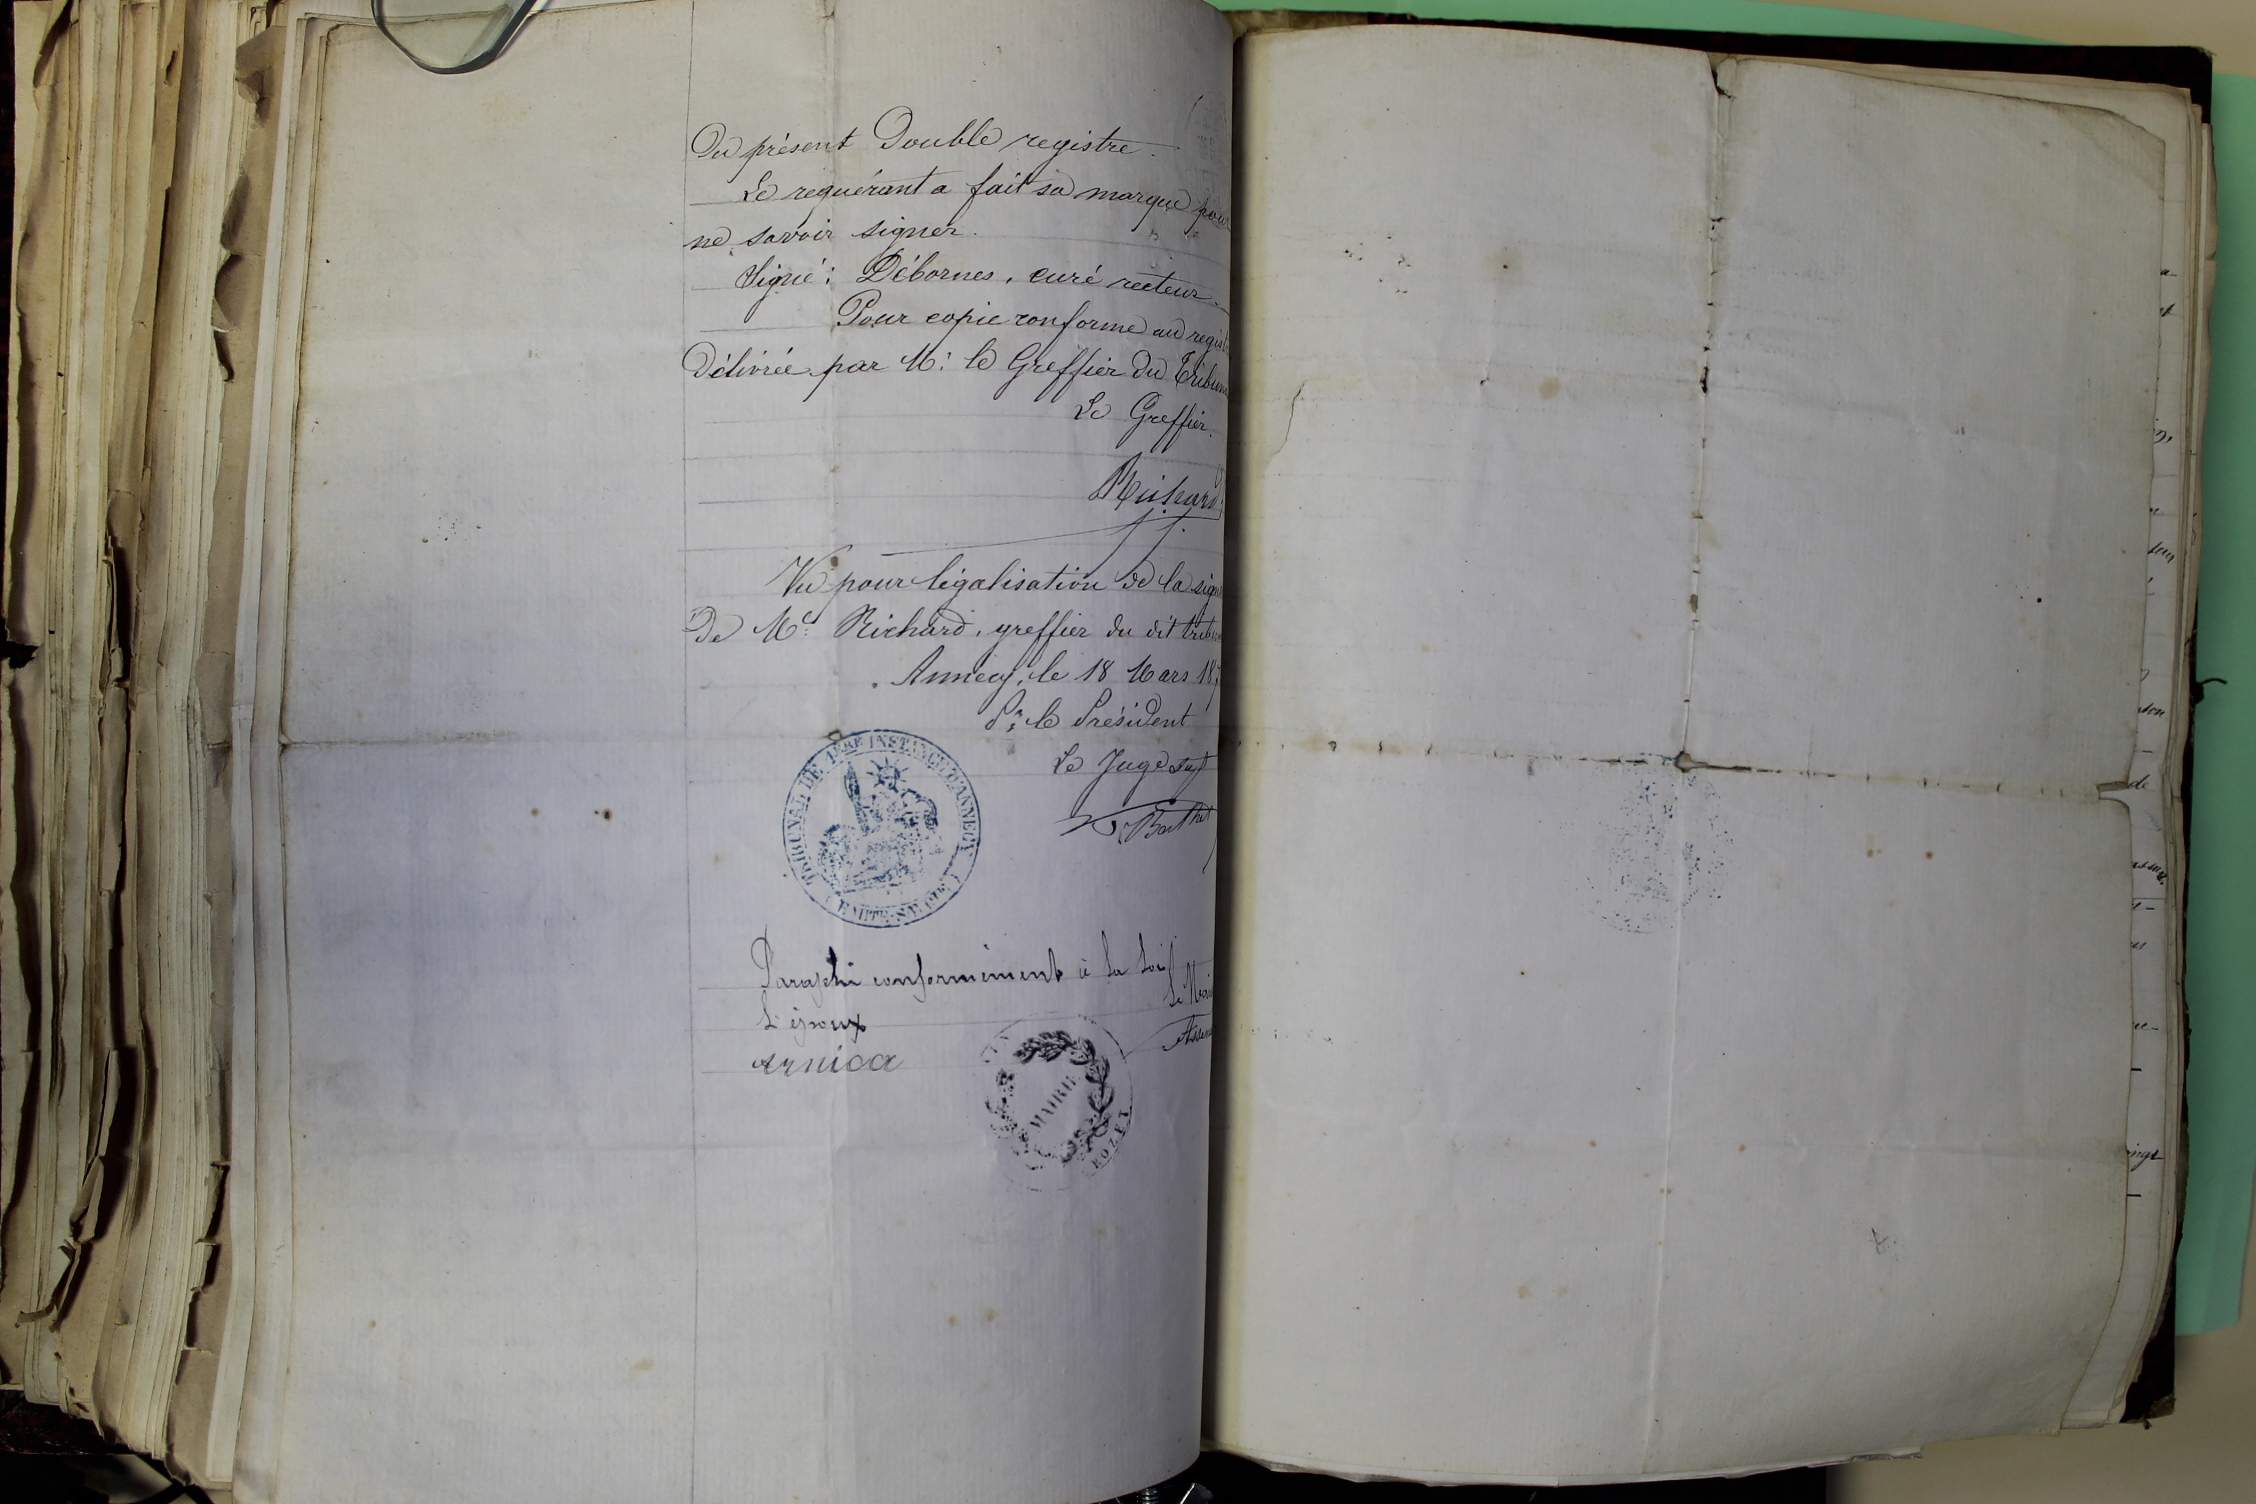 Du présent Double registre.
Le requérant a fait sa marque pour
ne savoir signer.
Signé: Débornes, curé recteur.
Pour copie conforme au regist
Délivrée par M. le Greffier du Tribun
Le Greffier.
Richard
Vu pour légalisation de la sign
De Me Richard, greffier du dit tribu
Annecy, le 18 Mars 18
Pr le Président
Le Juge
Barthet
TRIBUNAL DE 1ERE INSTANCE D'ANNECY
(HAUTE-SAVOIE)
Paraphé conformément à la loi
Le Mair
L'époux
arnica
MAIRIE